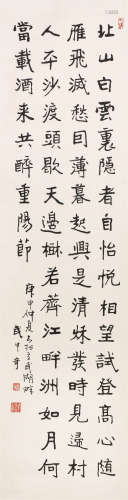 北山白雲裏隱者自怡悅相望試登高心隨
雁飛滅愁因薄暮起興是清秌發時見歸村
人平沙渡頭歇天邊樹若薺江畔洲如月何
當載酒来共醉重陽節
庚申仲夏湖畔
武中奇